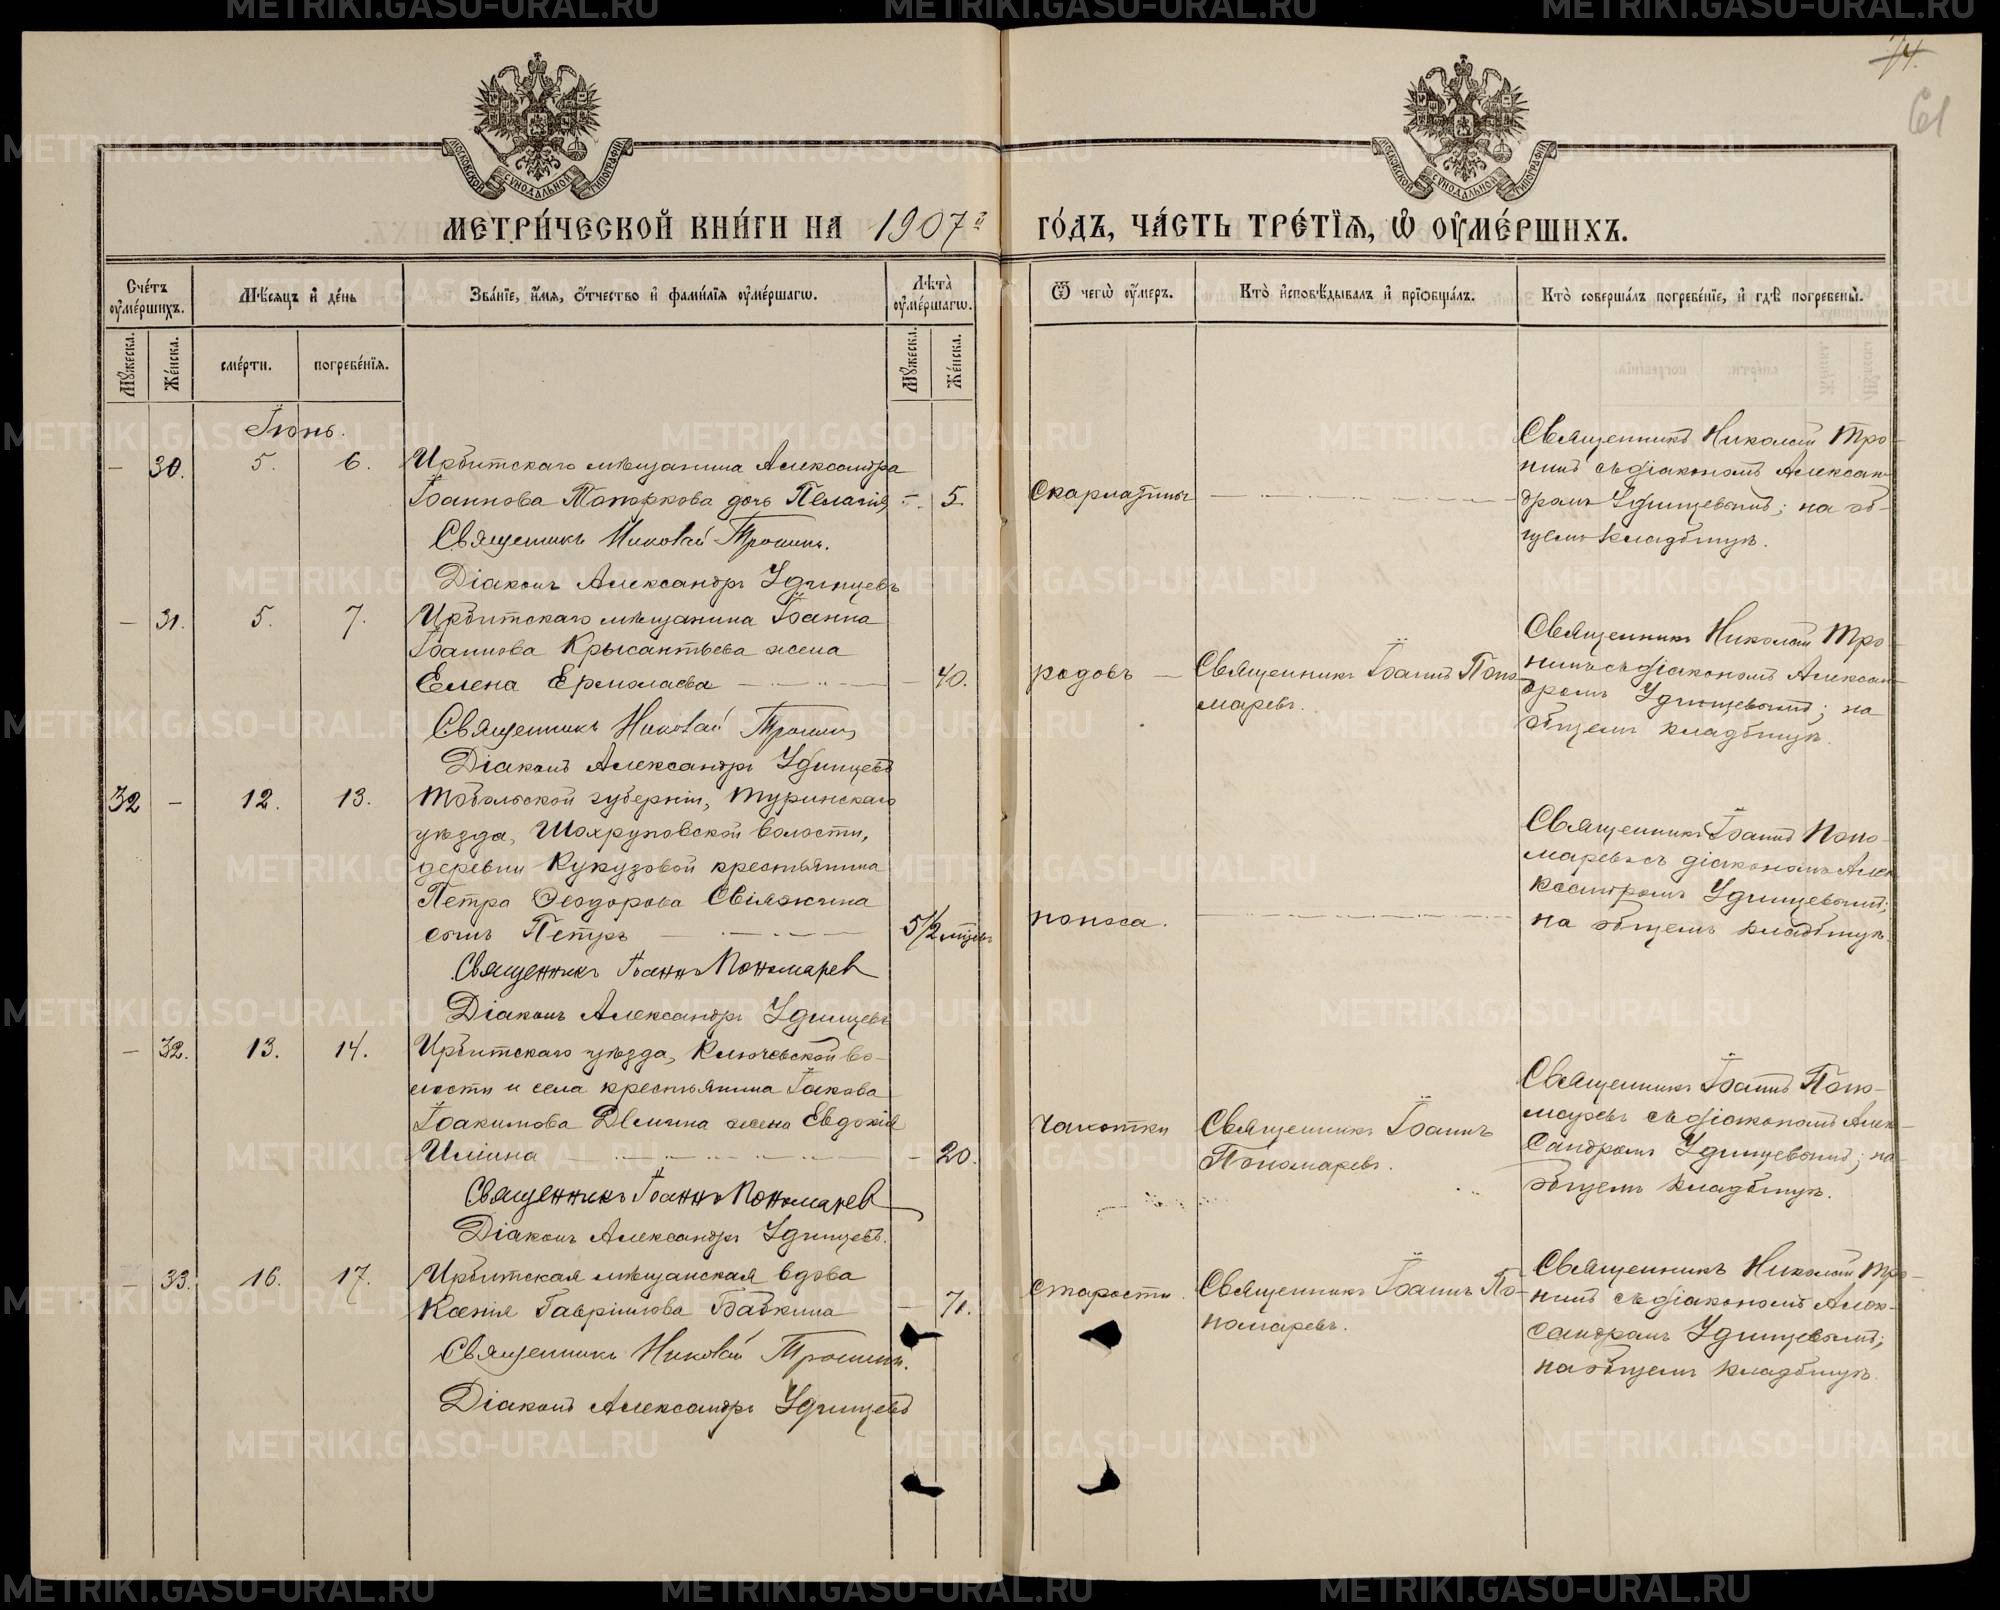 74.
61
МОСКОВСКОЙ СѴНОДАЛЬНОЙ ТИПОГРАФІИ
МОСКОВСКОЙ СѴНОДАЛЬНОЙ ТИПОГРАФІИ
МЕТРИ́ЧЕСКОЙ КНИ́ГИ НА 1907й ГО́ДЪ, ЧА́СТЬ ТРЕ́ТІѦ, Ѽ ОУ҆МЕ́РШИХЪ.
Сче́тъ оу҆ме́ршихъ.
Мѣ́сяцъ и҆ де́нь
Зва́нїе, и҆́мѧ, ѻ҆́тчество и҆ фами́лїѧ оу҆ме́ршагѡ.
Лѣ́та̀ оу҆ме́ршагѡ.
Ѿ чегѡ̀ оу҆́меръ.
Кто̀ и҆сповѣ́дывалъ и҆ прїѡбща́лъ.
Кто̀ соверша́лъ погребе́нїе, и҆ гдѣ̀ погребены̀.
Мꙋ́жеска. Же́нска.
сме́рти. погребе́нїѧ.
Мꙋ́жеска. Же́нска.
Іюнь.
– 30. 5. 6.
Ирбитскаго мѣщанина Александра
Іоаннова Топоркова дочь Пелагія – 5.
Священникъ Николай Тронинъ.
Діаконъ Александръ Удинцевъ
Скарлатины
Священникъ Николай Тро-
нинъ съ діакономъ Алексан-
дромъ Удинцевымъ; на об-
щемъ кладбищѣ.
– 31. 5. 7.
Ирбитскаго мѣщанина Іоанна
Іоаннова Крысантьева жена
Елена Ермолаева – 40.
Священникъ Николай Тронинъ
Діаконъ Александръ Удинцевъ
родовъ
Священникъ Іоаннъ Поно-
маревъ.
Священникъ Николай Тро-
нинъ съ діакономъ Алексан-
дромъ Удинцевымъ; на
общемъ кладбищѣ.
32 – 12. 13.
Тобольской губерніи, Туринскаго
уѣзда, Шахруповской волости,
деревни Кукузовой крестьянина
Петра Ѳеодорова Свіяжина
сынъ Петръ 5 1/2 мѣсяц
Священникъ Іоаннъ Пономарев
Діаконъ Александръ Удинцевъ
поноса.
Священникъ Іоаннъ Поно-
маревъ съ діакономъ Алек-
сандромъ Удинцевымъ;
на общемъ кладбищѣ.
– 32. 13. 14.
Ирбитскаго уѣзда, Ключевской во-
лости и села крестьянина Іакова
Іоакимова Дѣмина жена Евдокія
Иліина – 20.
Священникъ Іоаннъ Пономарев
Діаконъ Александръ Удинцевъ.
чахотки
Священникъ Іоаннъ
Пономаревъ.
Священникъ Іоаннъ Поно-
маревъ съ діакономъ Алек-
сандромъ Удинцевымъ; на
общемъ кладбищѣ.
– 33. 16. 17.
Ирбитская мѣщанская вдова
Ксенія Гавріилова Бабкина – 71.
Священникъ Николай Тронинъ.
Діаконъ Александръ Удинцевъ
старости.
Священникъ Іоаннъ По-
номаревъ.
Священникъ Николай Тро-
нинъ съ діакономъ Алек-
сандромъ Удинцевымъ;
на общемъ кладбищѣ.
METRIKI.GASO-URAL.RU